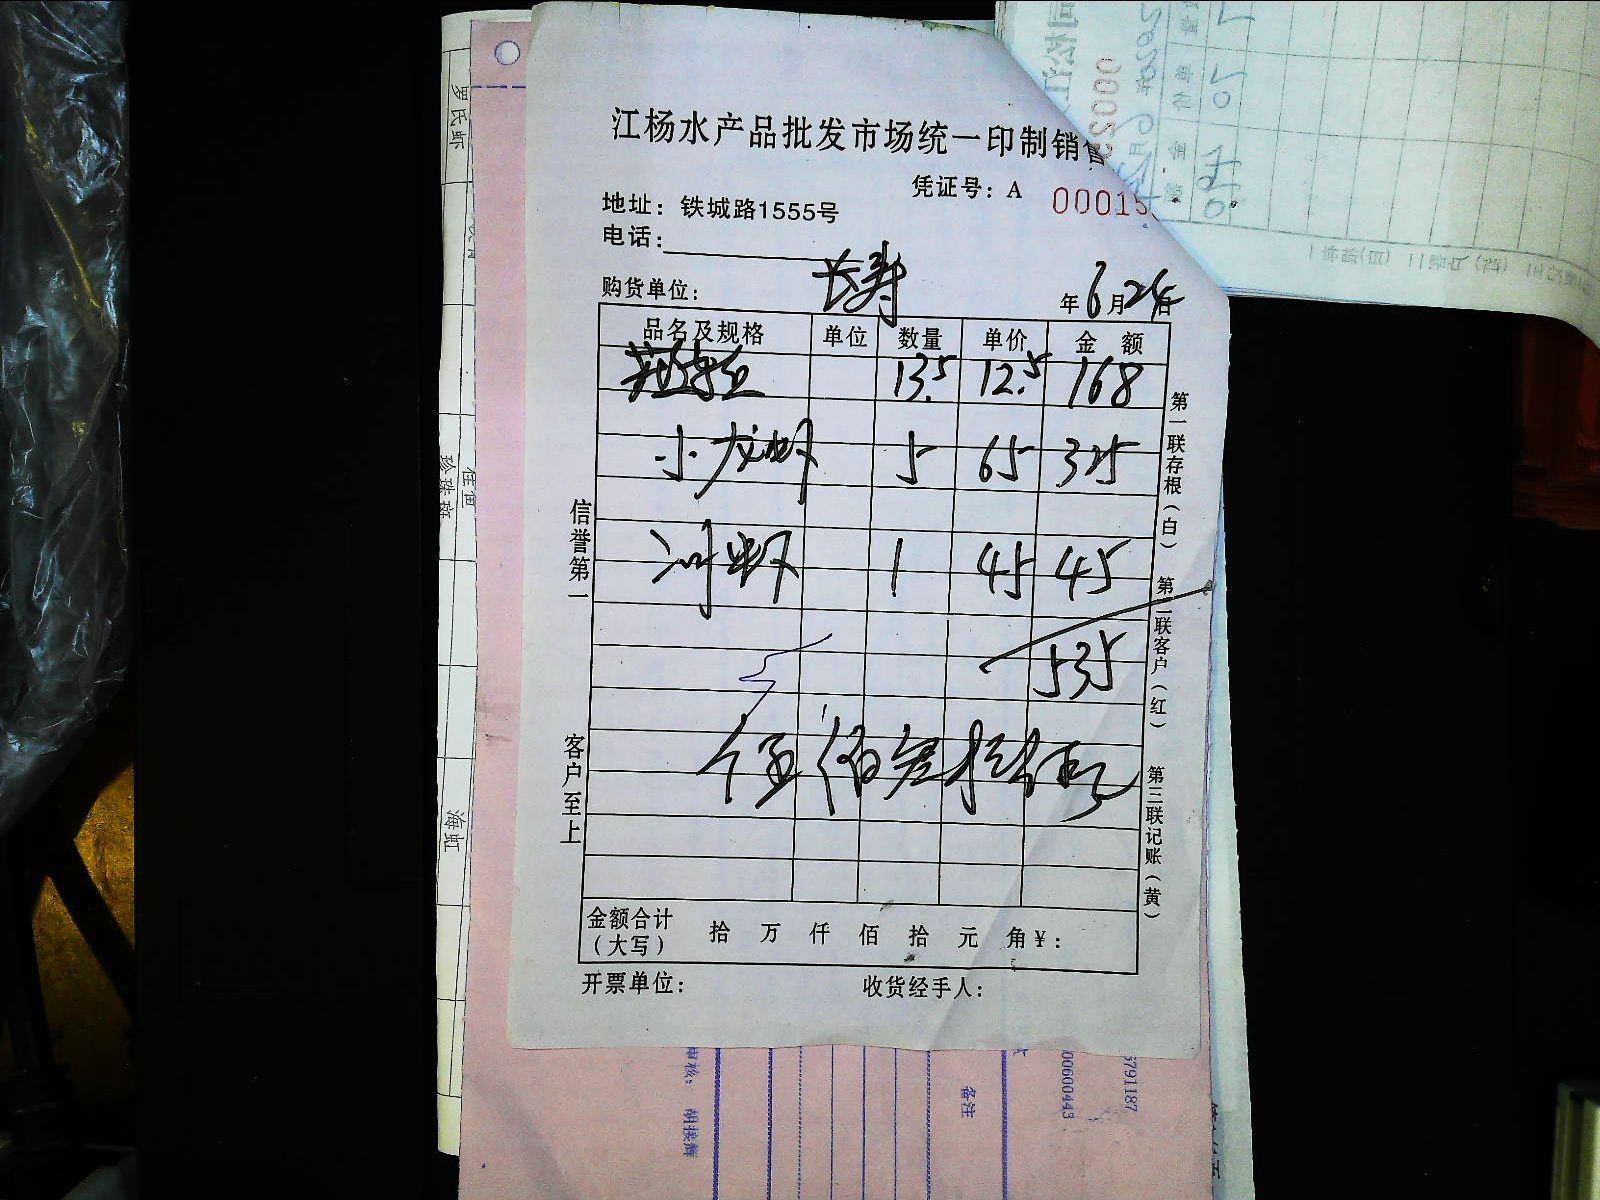 江杨水产品批发市场统一印制销售
凭证号：A 00015
地址：铁城路1555号
电话：
购货单位： 长寿 年6月24日
品名及规格 单位 数量 单价 金额
13.5 12.5 168
小龙虾 5 65 325
河虾 1 45 45
535
伍佰叁拾伍元
金额合计（大写） 拾 万 仟 佰 拾 元 角 ¥：
开票单位： 收货经手人：
信誉第一
客户至上
第一联存根（白）
第二联客户（红）
第三联记账（黄）
罗氏虾
桂鱼
珍珠斑
海虹
备注
000600443
3791187